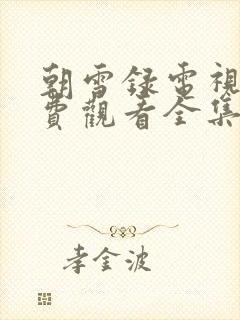 朝雪録電視
費觀看全集
李金波